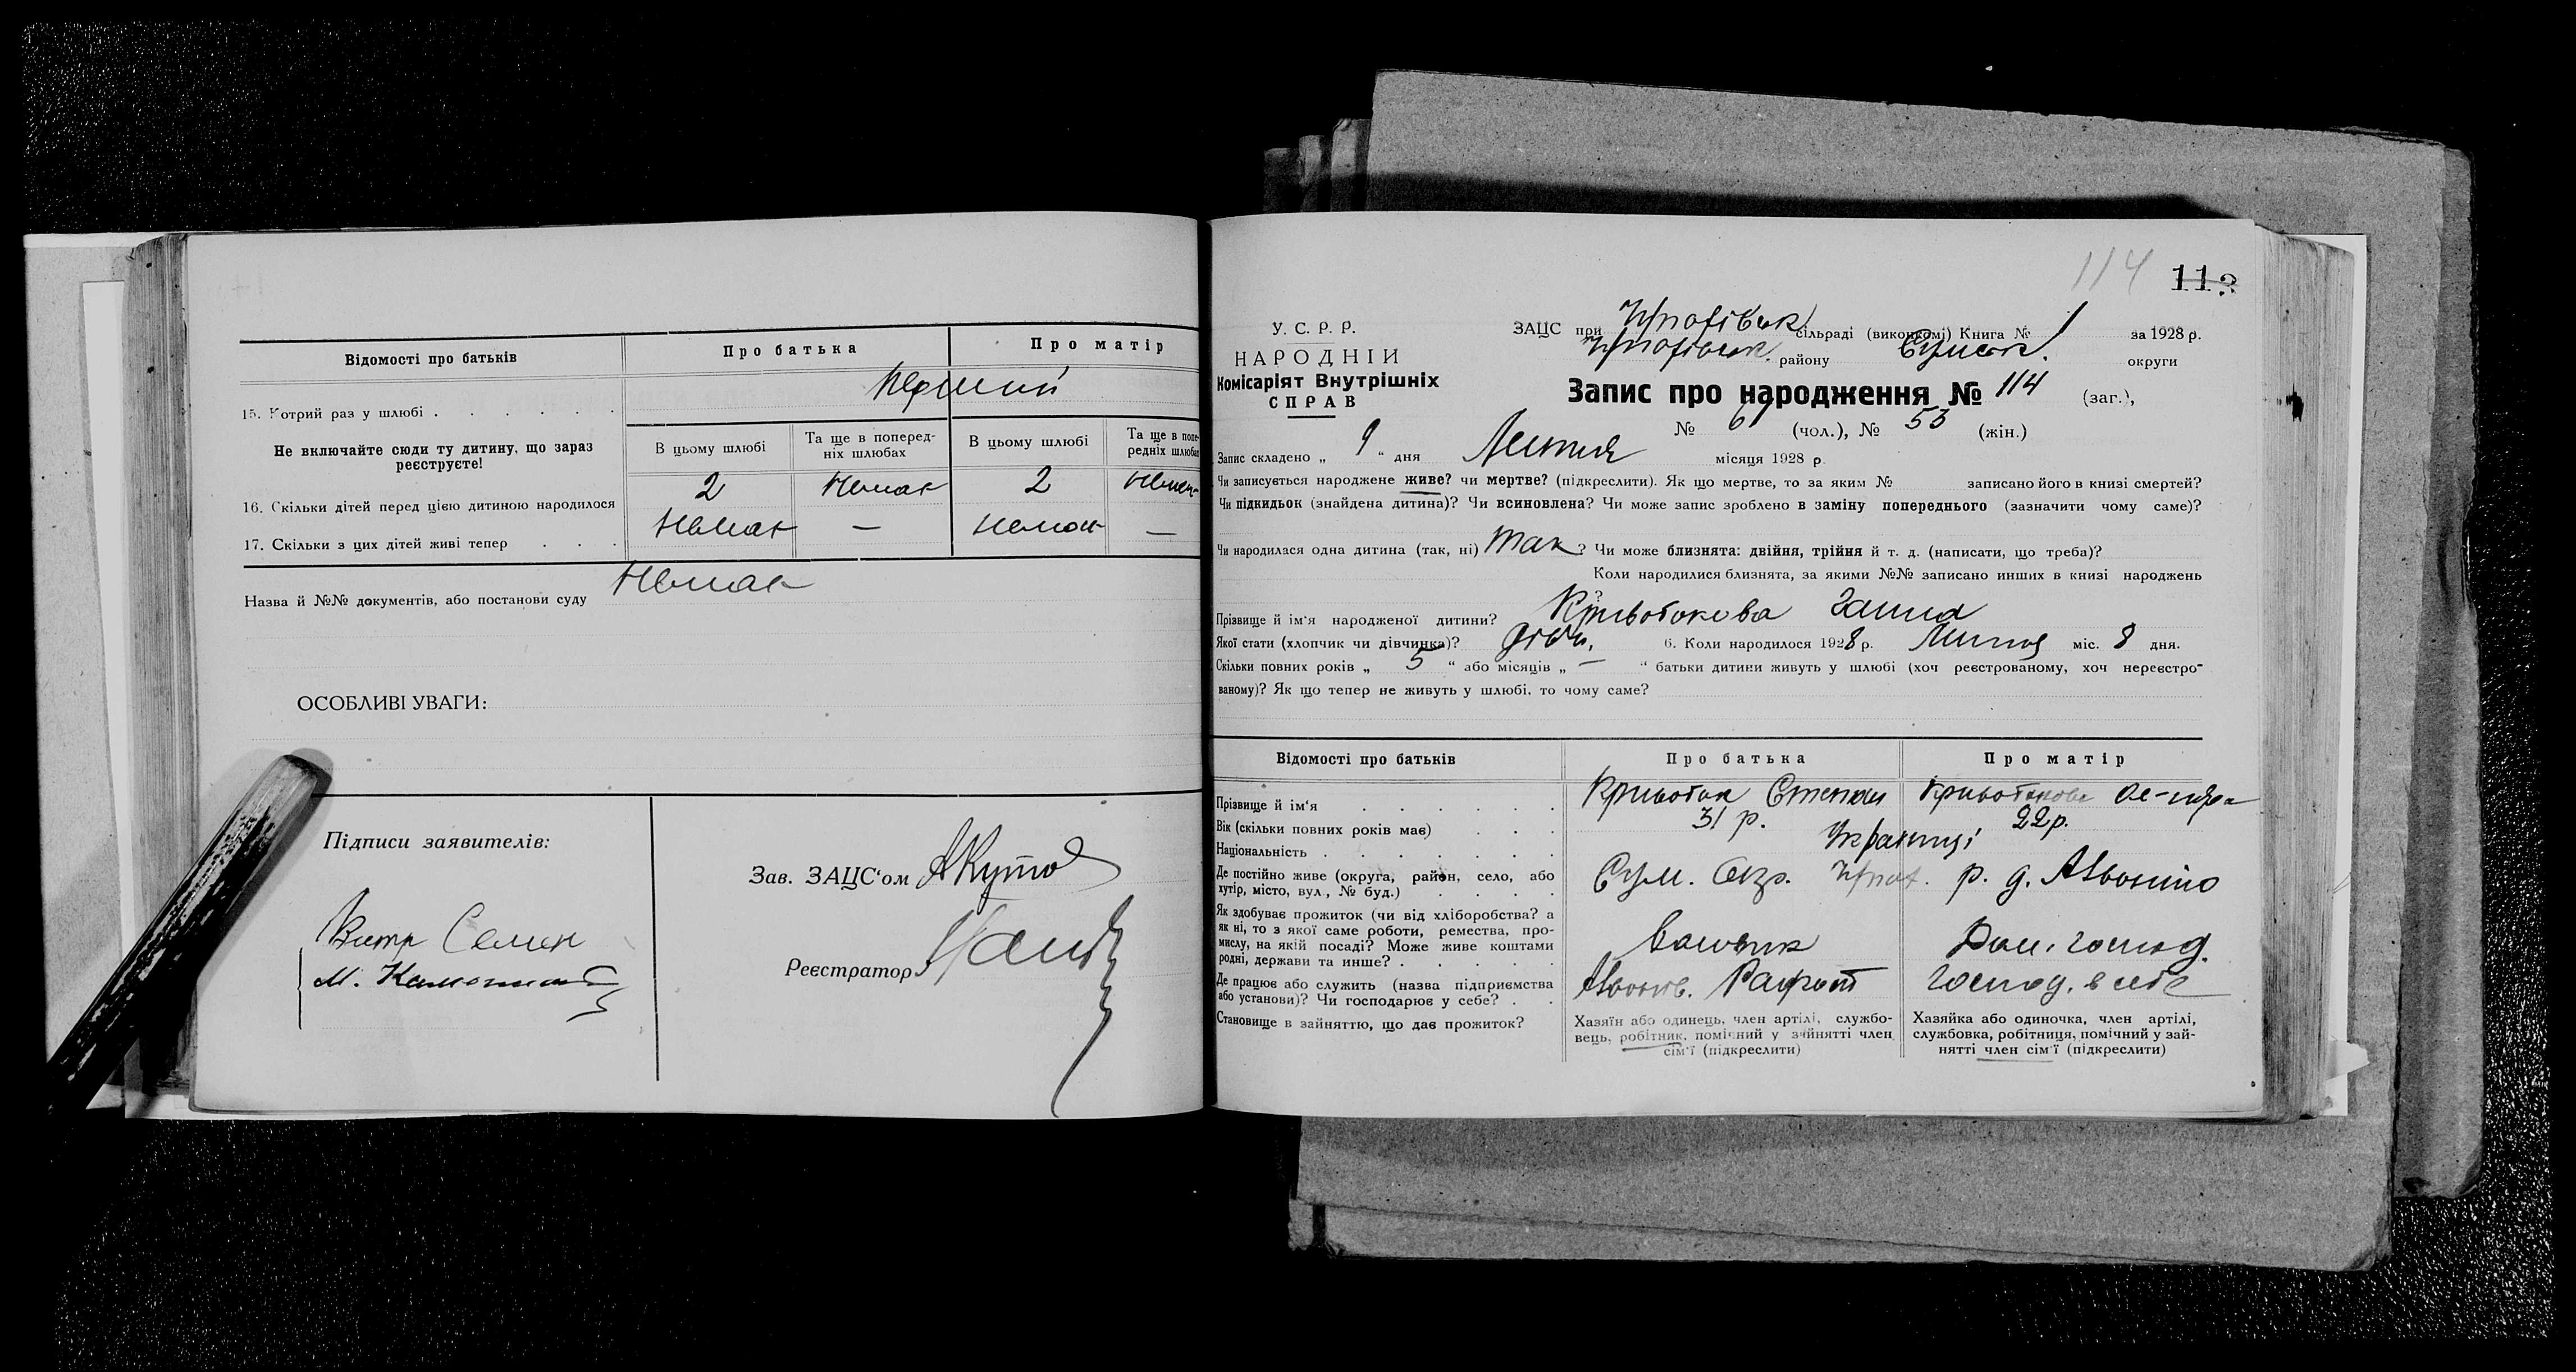 Відомості про батьків
Про батька
Про матір
15. Котрий раз у шлюбі
Перший
Не включайте сюди ту дитину, що зараз реєструєте!
В цьому шлюбі
Та ще в попередніх шлюбах
В цьому шлюбі
Та ще в попередніх шлюбах
16. Скільки дітей перед цією дитиною народилося
2
Немає
2
17. Скільки з цих дітей живі тепер
Немає
—
—
Назва й №№ документів, або постанови суду
Немає
ОСОБЛИВІ УВАГИ:
Підписи заявителів:
Семен
М.
Зав. ЗАЦС‘ом
Реєстратор
114
113
У. С. Р. Р.
НАРОДНІЙ
Комісаріят Внутрішніх
СПРАВ
ЗАЦС при сільраді (виконкомі) Книга № 1 за 1928 р.
району Сумськ. округи
Запис про народження № 114 (заг.),
№ 61 (чол.), № 53 (жін.)
Запис складено „ 9 “ дня Липня місяця 1928 р.
Чи записується народжене живе? чи мертве? (підкреслити). Як що мертве, то за яким № записано його в книзі смертей?
Чи підкидьок (знайдена дитина)? Чи всиновлена? Чи може запис зроблено в заміну попереднього (зазначити чому саме)?
Чи народилася одна дитина (так, ні) так ? Чи може близнята: двійня, трійня й т. д. (написати, що треба)?
Коли народилися близнята, за якими №№ записано инших в книзі народжень
?
Прізвище й ім‘я народженої дитини?
Якої стати (хлопчик чи дівчинка)? дівч. 6. Коли народилося 1928 р. Липня міс. 8 дня.
Скільки повних років „ 5 “ або місяців „ — “ батьки дитини живуть у шлюбі (хоч реєстрованому, хоч нереєстрованому)? Як що тепер не живуть у шлюбі, то чому саме?
Відомості про батьків
Про батька
Про матір
Прізвище й ім‘я
Степан
Вік (скільки повних років має)
31 р.
22 р.
Національність
Українці
Де постійно живе (округа, район, село, або
хутір, місто, вул., № буд.)
Сум.
Як здобуває прожиток (чи від хліборобства? а
як ні, то з якої саме роботи, ремества, про-
мислу, на якій посаді? Може живе коштами
родні, держави та инше?
Дом. господ.
Де працює або служить (назва підприємства
або установи)? Чи господарює у себе?
господ. в себе
Становище в зайняттю, що дає прожиток?
Хазяїн або одинець, член артілі, службо-
вець, робітник, помічний у зайнятті член
сім‘ї (підкреслити)
Хазяйка або одиночка, член артілі,
службовка, робітниця, помічний у зай-
нятті член сім‘ї (підкреслити)